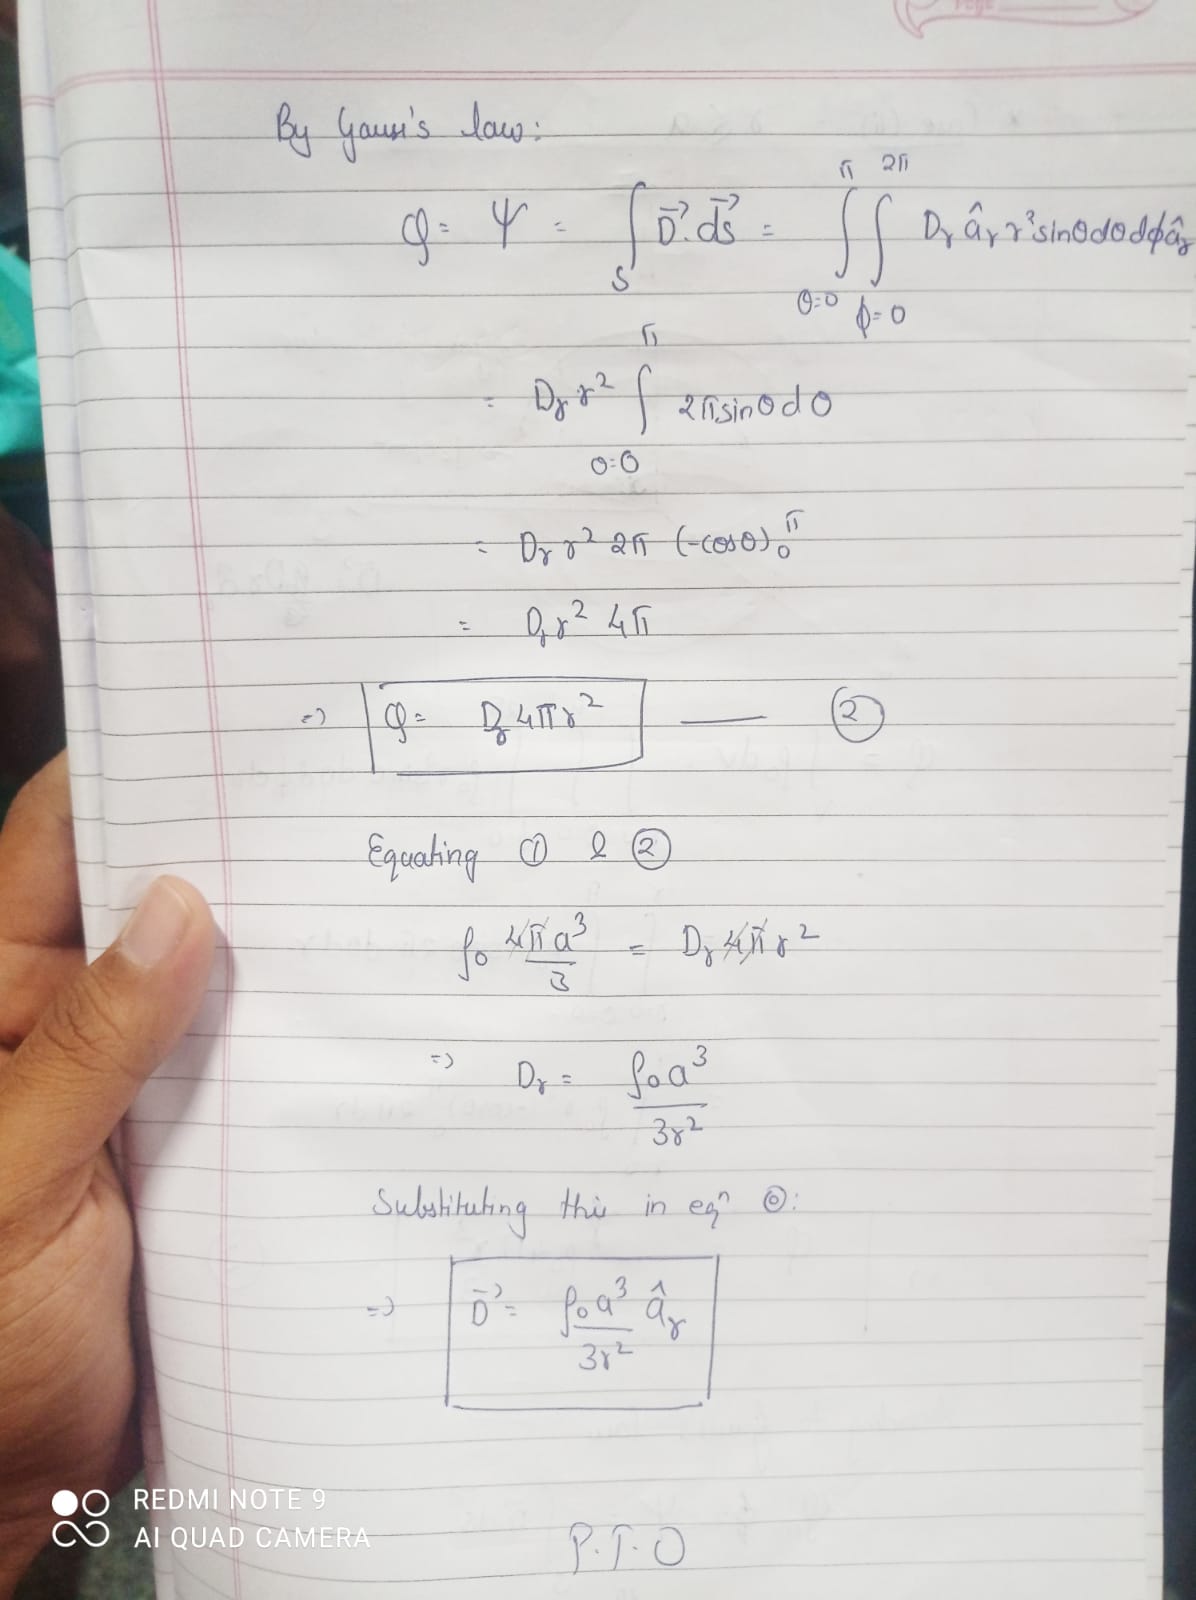 Page
By Gauss's law:
Q = Ψ = ∫_S D⃗.ds⃗ = ∫_{θ=0}^{π} ∫_{ϕ=0}^{2π} D_r â_r r² sinθdθdϕ â_r
= D_r r² ∫_{θ=0}^{π} 2π sinθdθ
= D_r r² 2π (-cosθ)_0^π
= D_r r² 4π
=> Q = D_r 4πr² —— ②
Equating ① & ②
ρ₀ 4πa³/3 = D_r 4πr²
=> D_r = ρ₀a³/3r²
Substituting this in eqⁿ ⓪:
=> D⃗ = ρ₀a³/3r² â_r
P.T.O
REDMI NOTE 9
AI QUAD CAMERA